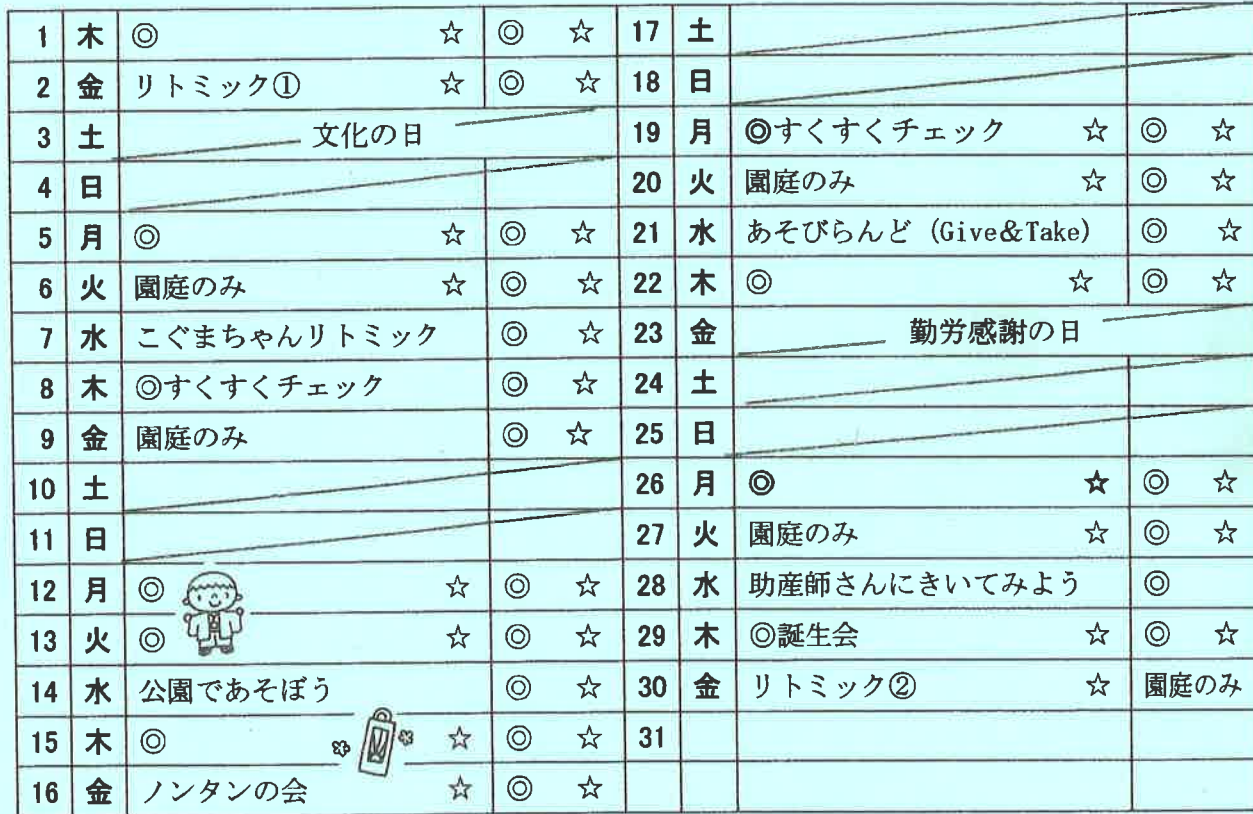 1 木 ◎ ☆ ◎ ☆
2 金 リトミック① ☆ ◎ ☆
3 土 文化の日
4 日
5 月 ◎ ☆ ◎ ☆
6 火 園庭のみ ☆ ◎ ☆
7 水 こぐまちゃんリトミック ◎ ☆
8 木 ◎すくすくチェック ◎ ☆
9 金 園庭のみ ◎ ☆
10 土
11 日
12 月 ◎ ☆ ◎ ☆
13 火 ◎ ☆ ◎ ☆
14 水 公園であそぼう ◎ ☆
15 木 ◎ ☆ ◎ ☆
16 金 ノンタンの会 ☆ ◎ ☆
17 土
18 日
19 月 ◎すくすくチェック ☆ ◎ ☆
20 火 園庭のみ ☆ ◎ ☆
21 水 あそびらんど (Give&Take) ◎ ☆
22 木 ◎ ☆ ◎ ☆
23 金 勤労感謝の日
24 土
25 日
26 月 ◎ ☆ ◎ ☆
27 火 園庭のみ ☆ ◎ ☆
28 水 助産師さんにきいてみよう ◎
29 木 ◎誕生会 ☆ ◎ ☆
30 金 リトミック② ☆ 園庭のみ
31